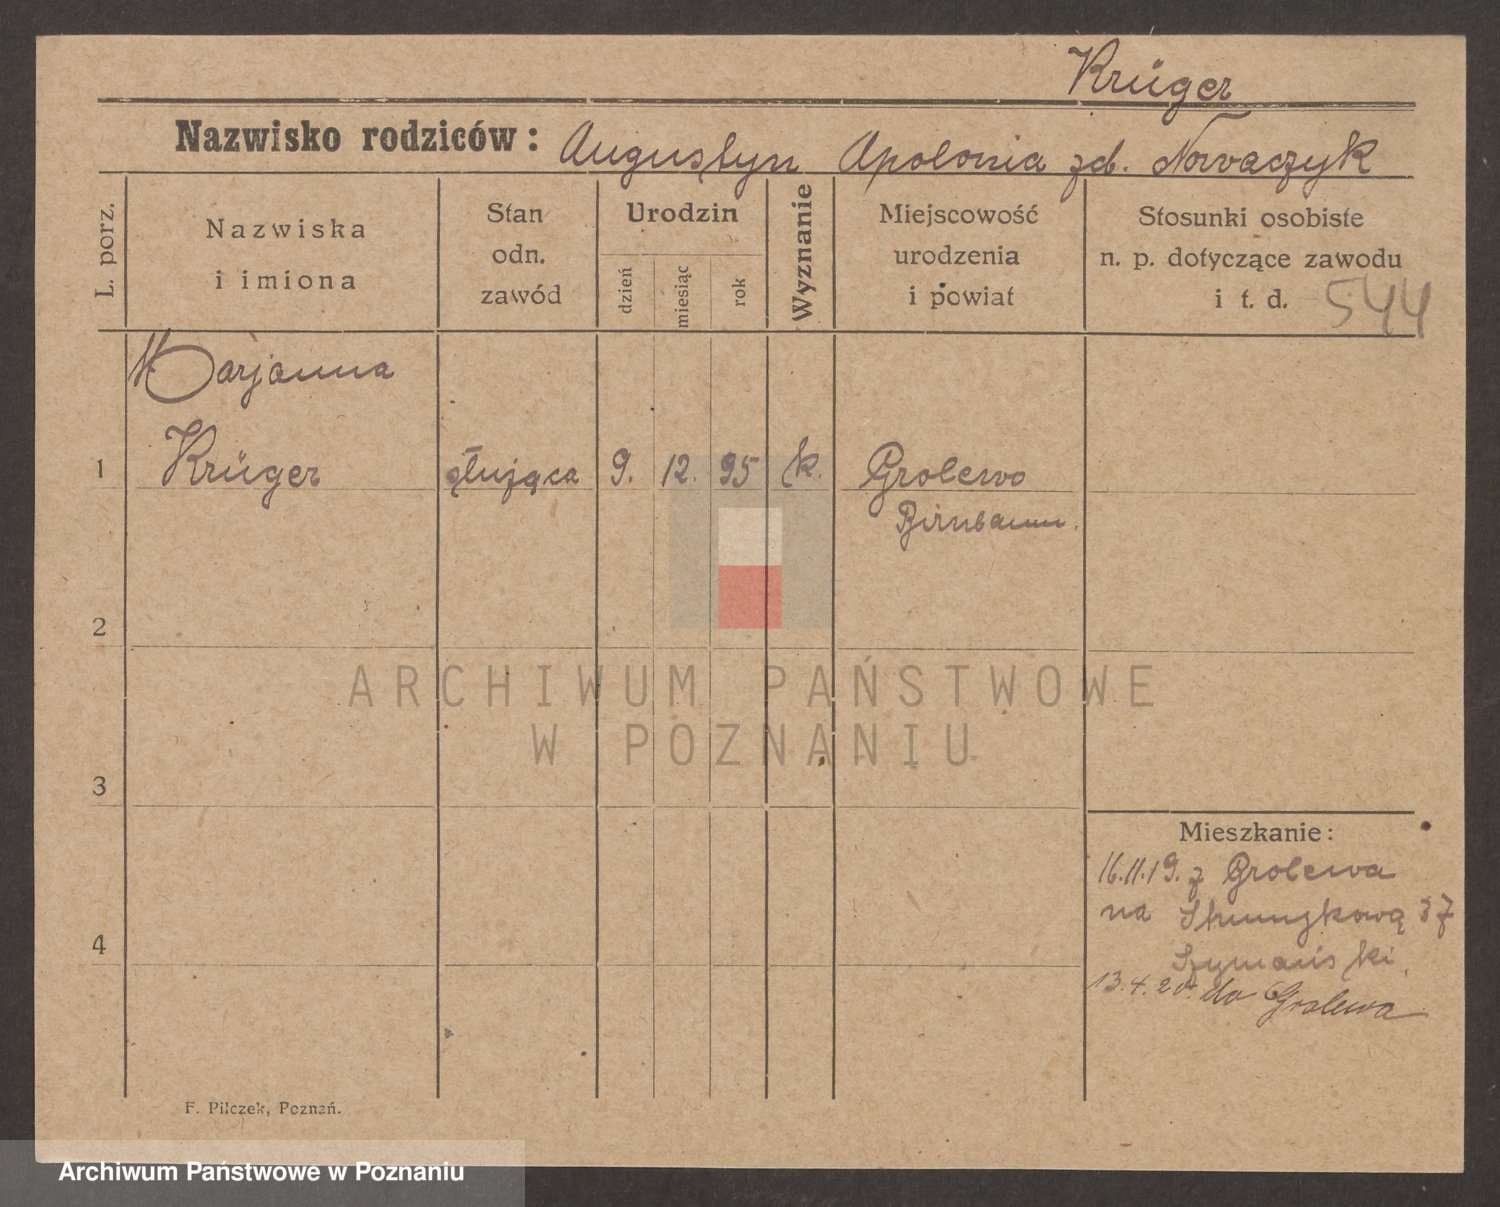 Krüger
Nazwisko rodziców: Augustyn Apolonia zd. Nowaczyk
L. porz.
Nazwiska
i imiona
Stan
odn.
zawód
Urodzin
dzień
miesiąc
rok
Wyznanie
Miejscowość
urodzenia
i powiat
Stosunki osobiste
n. p. dotyczące zawodu
i t. d. 544
Marjanna
1 Krüger służąca 9. 12. 95 k. Grolewo
Birnbaum.
2
3
4
Mieszkanie:
16.11.19. z Grolewa
na
Szymański.
13.4.20. do Grolewa
F. Pilczek, Poznań.
ARCHIWUM PAŃSTWOWE
W POZNANIU
Archiwum Państwowe w Poznaniu